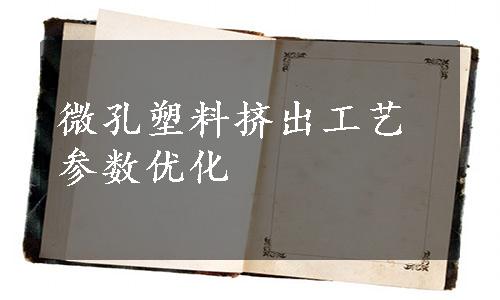 微孔塑料挤出工艺
参数优化